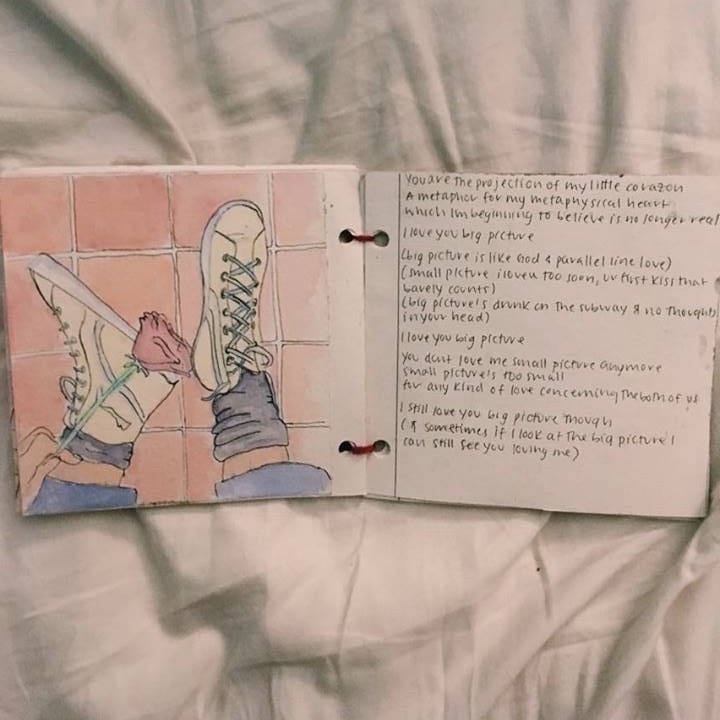 You are the projection of my little corazon
A metaphor for my metaphysical heart
which Im beginning to believe is no longer real
I love you big picture
(big picture is like God & parallel line love)
(small picture i love u too soon, ur first kiss that
barely counts)
(big picture's drunk on the subway & no thoughts
in your head)
I love you big picture
you dont love me small picture anymore
small picture's too small
for any kind of love concerning the both of us
I still love you big picture though
(& sometimes if I look at the big picture I
can still see you loving me)